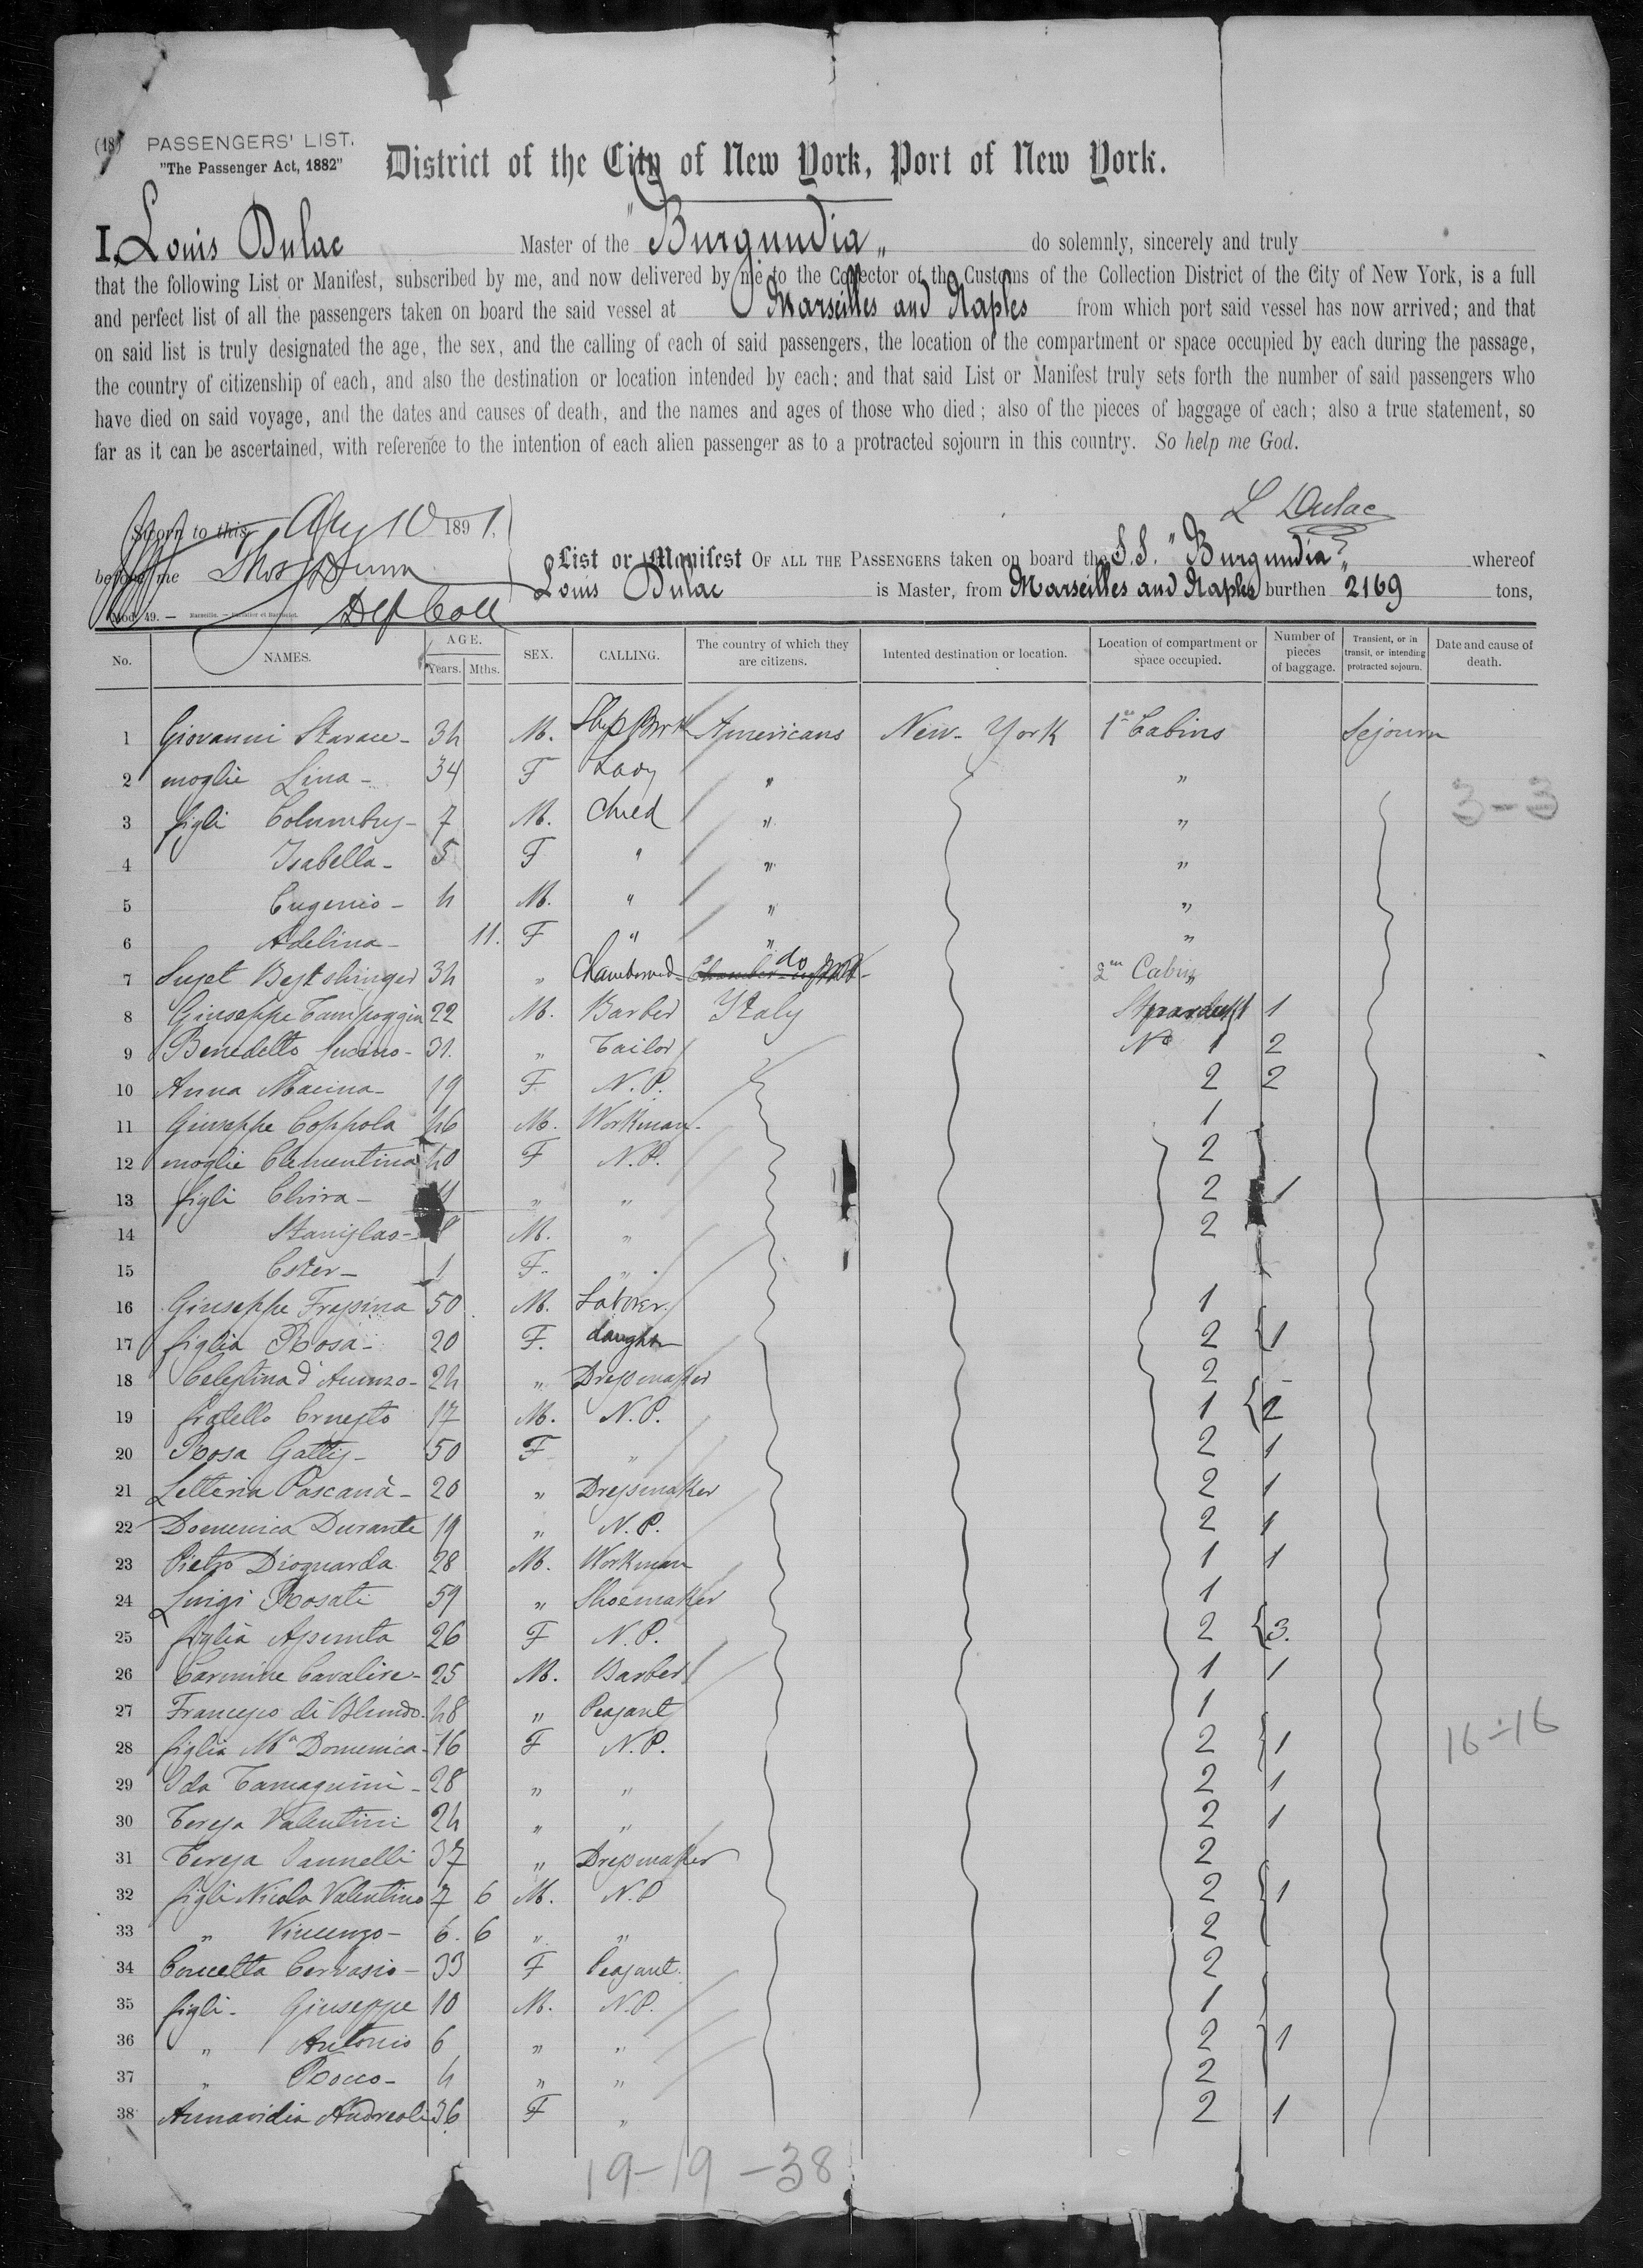 (18)
PASSENGERS' LIST.
"The Passenger Act, 1882"
District of the City of New York, Port of New York.
I, Louis Dulac Master of the "Burgundia" do solemnly, sincerely and truly
that the following List or Manifest, subscribed by me, and now delivered by me to the Collector of the Customs of the Collection District of the City of New York, is a full
and perfect list of all the passengers taken on board the said vessel at Marseilles and Naples from which port said vessel has now arrived; and that
on said list is truly designated the age, the sex, and the calling of each of said passengers, the location of the compartment or space occupied by each during the passage,
the country of citizenship of each, and also the destination or location intended by each; and that said List or Manifest truly sets forth the number of said passengers who
have died on said voyage, and the dates and causes of death, and the names and ages of those who died; also of the pieces of baggage of each; also a true statement, so
far as it can be ascertained, with reference to the intention of each alien passenger as to a protracted sojourn in this country. So help me God.
L Dulac
Sworn to this 10 1891.
before me Thos Dunn
Dep Coll
Mod. 49. —
List or Manifest OF ALL THE PASSENGERS taken on board the S.S. "Burgundia" whereof
Louis Dulac is Master, from Marseilles and Naples burthen 2169 tons,
No. NAMES. AGE. Years. Mths. SEX. CALLING. The country of which they are citizens. Intented destination or location. Location of compartment or space occupied. Number of pieces of baggage. Transient, or in transit, or intending protracted sojourn. Date and cause of death.
1 Giovanni Starace - 34 M. Americans New-York 1re Cabins Sejourn
2 moglie Lina - 34 F Lady " "
3 figli Columbus - 7 M. Child " "
3-3
4 Isabella - 5 F " " "
5 Eugenio - 4 M. " " "
6 Adelina - 11. F " " "
7 34 " do 2me Cabin
8 Giuseppe 22 M. Barber Italy 1
9 Benedetto 31. " Tailor No 1 2
10 Anna Macina - 19 F N.P. 2 2
11 Giuseppe Coppola 46 M. Workman - 1
12 moglie Clementina 40 F N.P. 2
13 figli Elvira - 11 " " 2 1
14 Stanislao - 8 M. " 2
15 Ester - 1 F - "
16 Giuseppe Frassina 50 M. Laborer 1
17 figlia Rosa - 20 F. daughter 2 1
18 Celestina d'Amizo - 24 " Dressmaker 2
19 fratello Ernesto 17 M. N.P. 1 2
20 Rosa Gattis - 50 F " 2 1
21 Letteria Pascanà - 20 " Dressmaker 2 1
22 Domenica Durante 19 " N.P. 2 1
23 Pietro Dioguarda 28 M. Workman 1 1
24 Luigi Rosati 59 " Shoemaker 1
25 figlia Assunta 26 F N.P. 2 3.
26 Carmine Cavalire - 25 M. Barber 1 1
27 Francesco di Blundo - 48 " Peasant 1
28 figlia Ma Domenica - 16 F N.P. 2 1
16-16
29 Ida Tamagnini - 28 " " 2 1
30 Teresa Valentini 24 " " 2 1
31 Teresa Iannelli 37 " Dressmaker 2
32 figli Nicola Valentino 7 6 M. N.P 2 1
33 " Vincenzo - 6. 6 " " 2
34 Concetta Cervasio - 33 F Peasant. 2
35 figli - Giuseppe 10 M. N.P. 1
36 " Antonio 6 " " 2 1
37 " Rocco - 4 " " 2
38 Annavidia Andreoli 36 F " 2 1
19-19-38